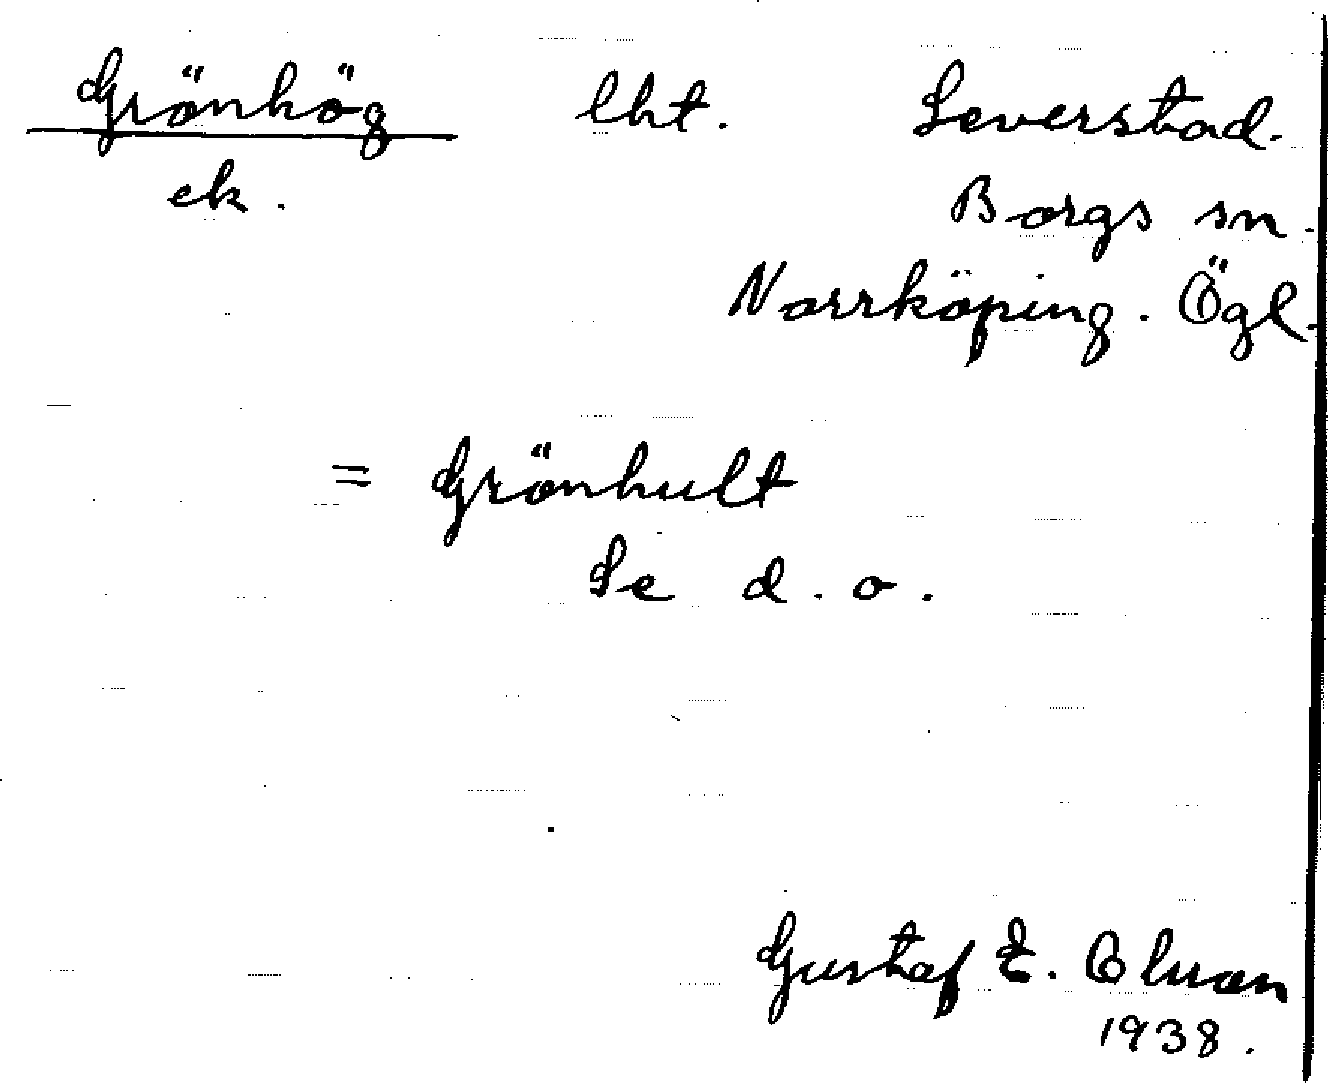 Grönhög lht. Leverstad.
ek. Borgs sn.
Norrköping. Ögl.
= Grönhult
Se d.o.
Gustaf E. Olson
1938.